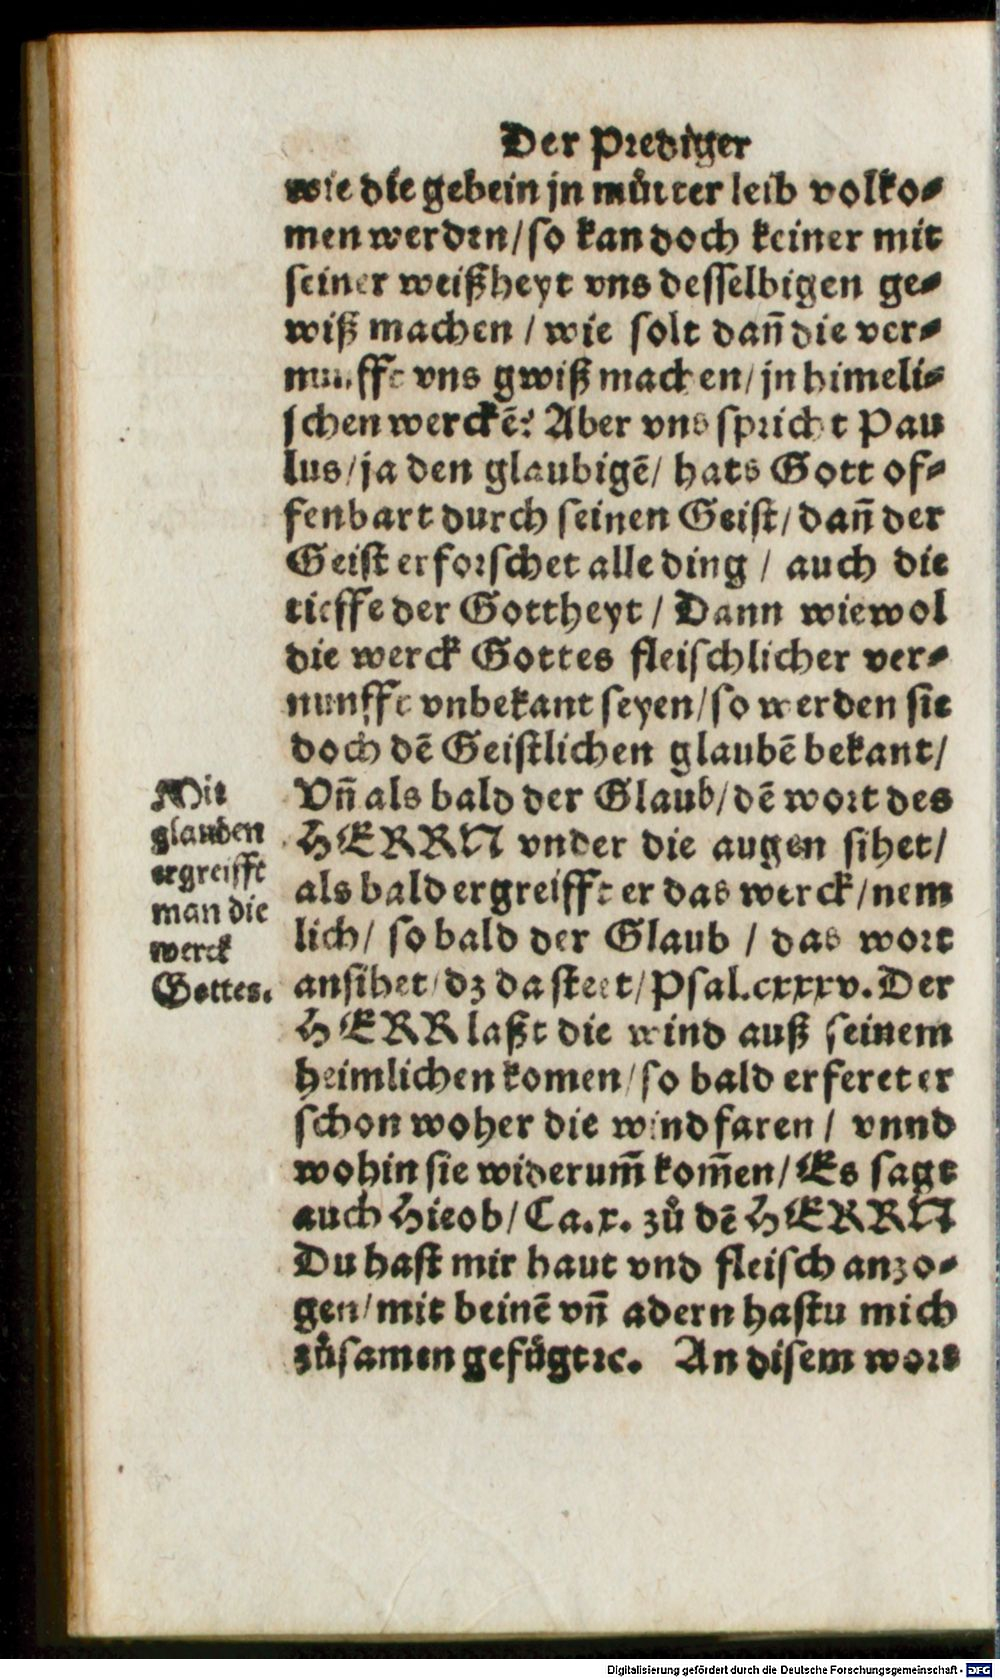 Der Prediger
wie die gebein jn můtter leib volko⸗
men werden/ so kan doch keiner mit
seiner weißheyt vns desselbigen ge⸗
wiß machen / wie solt dañ die ver⸗
nunfft vns gwiß machen/ jn himeli⸗
schen werckẽ? Aber vns spricht Pau
lus/ ja den glaubigẽ/ hats Gott of⸗
fenbart durch seinen Geist/ dañ der
Geist erforschet alle ding / auch die
tieffe der Gottheyt / Dann wiewol
die werck Gottes fleischlicher ver⸗
nunfft vnbekant seyen/ so werden sie
doch dẽ Geistlichen glaubẽ bekant/
Vñ als bald der Glaub/ dẽ wort des
HERRN vnder die augen sihet/
als bald ergreifft er das werck/ nem
lich/ so bald der Glaub / das wort
ansihet/ dz da steet/ Psal.cxxxv. Der
HERR laßt die wind auß seinem
heimlichen komen/ so bald erferet er
schon woher die wind faren / vnnd
wohin sie widerum̃ kom̃en/ Es sagt
auch Hieob/ Ca.x. zů dẽ HERRN
Du hast mir haut vnd fleisch anzo⸗
gen/ mit beinẽ vñ adern hastu mich
zůsamen gefůgt ꝛc. An disem wort
Mit
glauben
ergreifft
man die
werck
Gottes.
Digitalisierung gefördert durch die Deutsche Forschungsgemeinschaft - DFG